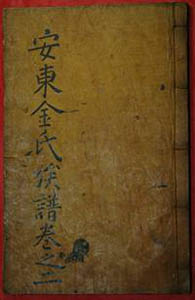 安東金氏族譜卷之二